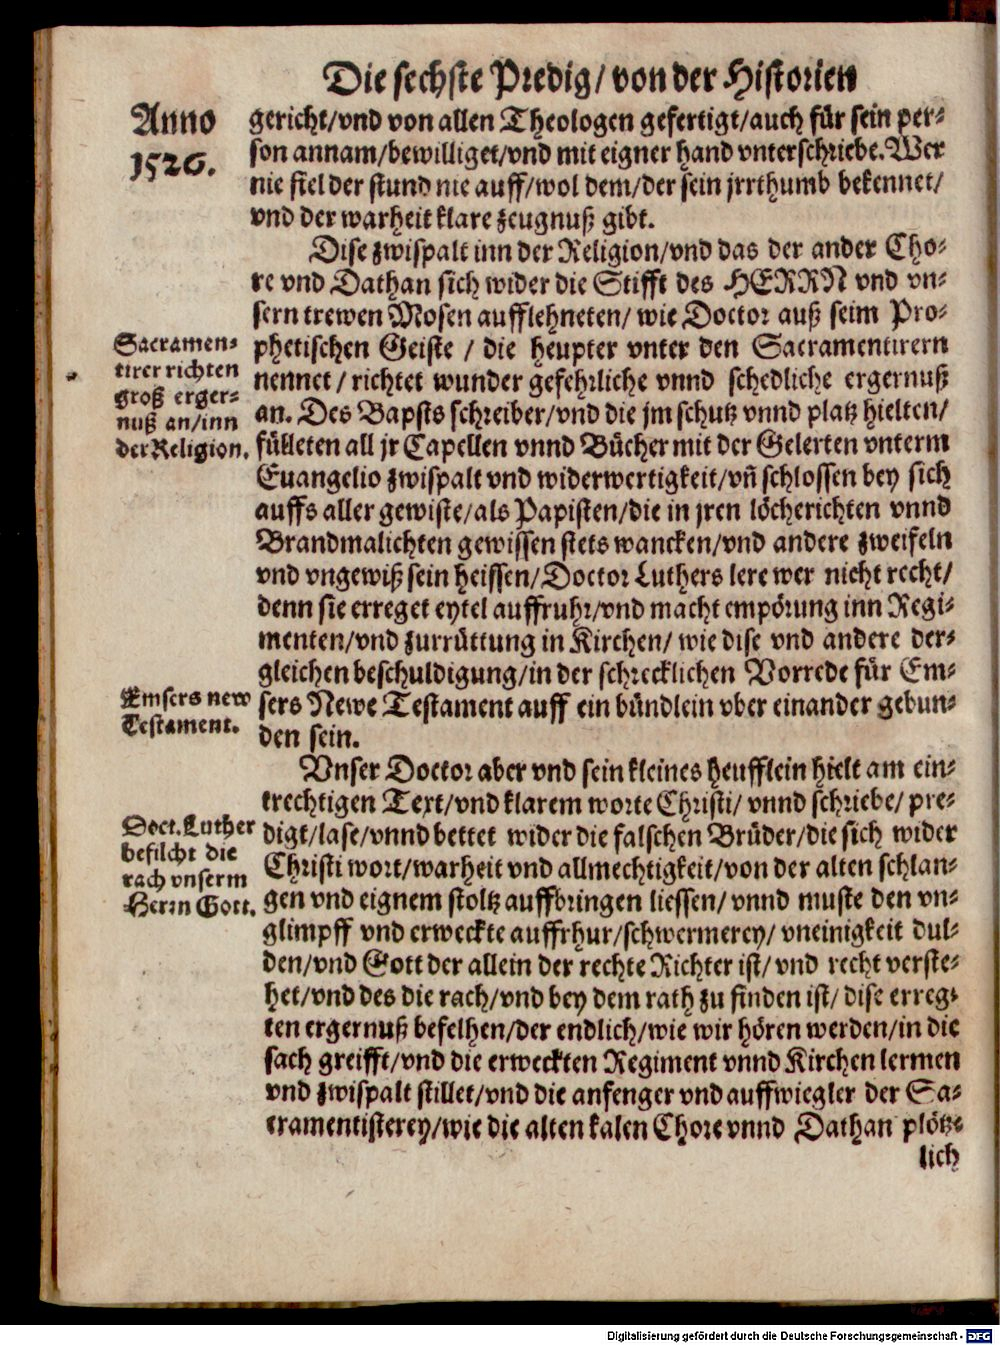 Die sechste Predig/ von der Historien
Anno
1526.
gericht/vnd von allen Theologen gefertigt/auch für sein per-
son annam/bewilliget/vnd mit eigner hand vnterschriebe. Wer
nie fiel der stund nie auff/wol dem/der sein jrrthumb bekennet/
vnd der warheit klare zeugnuß gibt.
Dise zwispalt inn der Religion/vnd das der ander Cho-
re vnd Dathan sich wider die Stifft des HERRN vnd vn-
sern trewen Mosen aufflehneten/ wie Doctor auß seim Pro-
phetischen Geiste / die heupter vnter den Sacramentirern
nennet / richtet wunder gefehrliche vnnd schedliche ergernuß
an. Des Bapsts schreiber/vnd die jm schutz vnnd platz hielten/
fülleten all jr Capellen vnnd Bücher mit der Gelerten vnterm
Euangelio zwispalt vnd widerwertigkeit/vñ schlossen bey sich
auffs aller gewiste/als Papisten/die in jren löcherichten vnnd
Brandmalichten gewissen stets wancken/vnd andere zweifeln
vnd vngewiß sein heissen/Doctor Luthers lere wer nicht recht/
denn sie erreget eytel auffruhr/vnd macht empörung inn Regi-
menten/vnd zurrüttung in Kirchen/ wie dise vnd andere der-
gleichen beschuldigung/in der schrecklichen Vorrede für Em-
sers Newe Testament auff ein bündlein vber einander gebun-
den sein.
Sacramen-
tirer richten
groß erger-
nuß an/inn
der Religion.
Emsers new
Testament.
Vnser Doctor aber vnd sein kleines heufflein hielt am ein-
trechtigen Text/vnd klarem worte Christi/ vnnd schriebe/ pre-
digt/lase/vnnd bettet wider die falschen Brüder/die sich wider
Christi wort/warheit vnd allmechtigkeit/von der alten schlan-
gen vnd eignem stoltz auffbringen liessen/ vnnd muste den vn-
glimpff vnd erweckte auffrhur/schwermerey/ vneinigkeit dul-
den/vnd Gott der allein der rechte Richter ist/ vnd recht verste-
het/vnd des die rach/vnd bey dem rath zu finden ist/ dise erreg-
ten ergernuß befelhen/der endlich/wie wir hören werden/in die
sach greifft/vnd die erweckten Regiment vnnd Kirchen lermen
vnd zwispalt stillet/vnd die anfenger vnd auffwiegler der Sa-
cramentisterey/wie die alten kalen Chore vnnd Dathan plötz-
lich
Doct. Luther
befilcht die
rach vnserm
Herrn Gott.
Digitalisierung gefördert durch die Deutsche Forschungsgemeinschaft - DFG